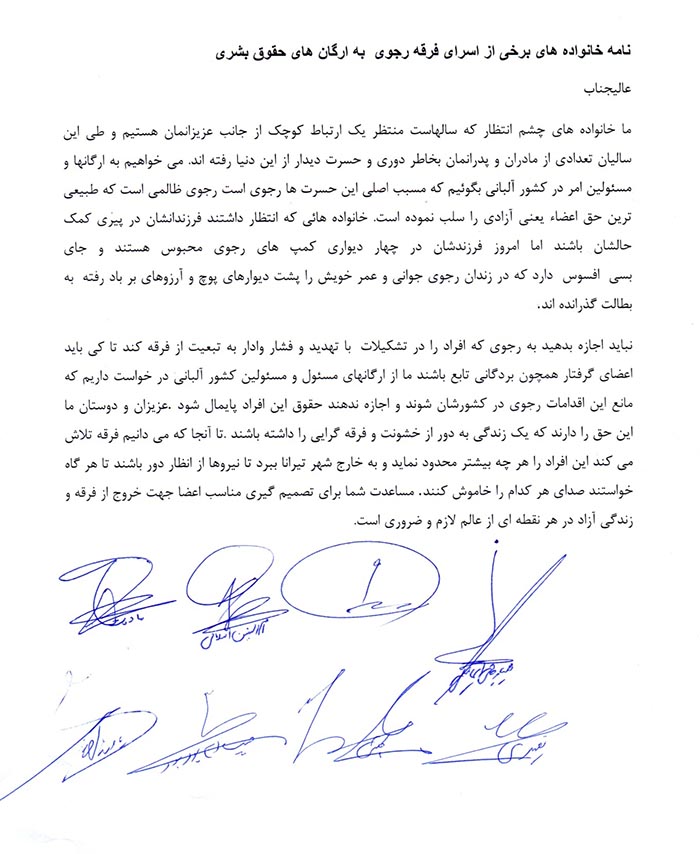 نامه خانواده های برخی از اسرای فرقه رجوی به ارگان های حقوق بشری
عالیجناب
ما خانواده های چشم انتظار که سالهاست منتظر یک ارتباط کوچک از جانب عزیزانمان هستیم و طی این
سالیان تعدادی از مادران و پدرانمان بخاطر دوری و حسرت دیدار از این دنیا رفته اند. می خواهیم به ارگانها و
مسئولین امر در کشور آلبانی بگوئیم که مسبب اصلی این حسرت ها رجوی است رجوی ظالمی است که طبیعی
ترین حق اعضاء یعنی آزادی را سلب نموده است. خانواده هائی که انتظار داشتند فرزندانشان در پیری کمک
حالشان باشند اما امروز فرزندشان در چهار دیواری کمپ های رجوی محبوس هستند و جای
بسی افسوس دارد که در زندان رجوی جوانی و عمر خویش را پشت دیوارهای پوچ و آرزوهای بر باد رفته به
بطالت گذرانده اند.
نباید اجازه بدهید به رجوی که افراد را در تشکیلات با تهدید و فشار وادار به تبعیت از فرقه کند تا کی باید
اعضای گرفتار همچون بردگانی تابع باشند ما از ارگانهای مسئول و مسئولین کشور آلبانی در خواست داریم که
مانع این اقدامات رجوی در کشورشان شوند و اجازه ندهند حقوق این افراد پایمال شود .عزیزان و دوستان ما
این حق را دارند که یک زندگی به دور از خشونت و فرقه گرایی را داشته باشند .تا آنجا که می دانیم فرقه تلاش
می کند این افراد را هر چه بیشتر محدود نماید و به خارج شهر تیرانا ببرد تا نیروها از انظار دور باشند تا هر گاه
خواستند صدای هر کدام را خاموش کنند. مساعدت شما برای تصمیم گیری مناسب اعضا جهت خروج از فرقه و
زندگی آزاد در هر نقطه ای از عالم لازم و ضروری است.